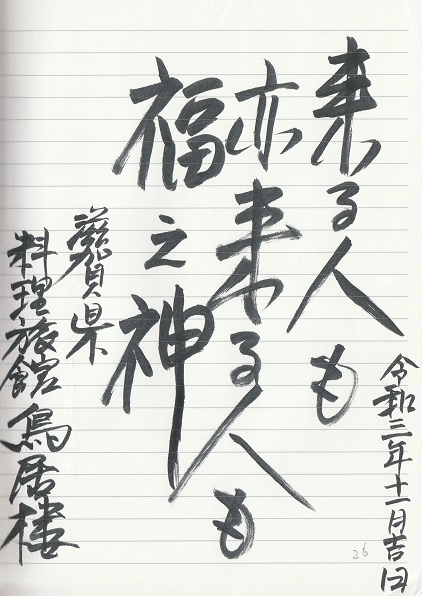 令和三年十一月吉日
来る人も
亦来る人も
福之神
滋賀県
料理旅館鳥居楼
26